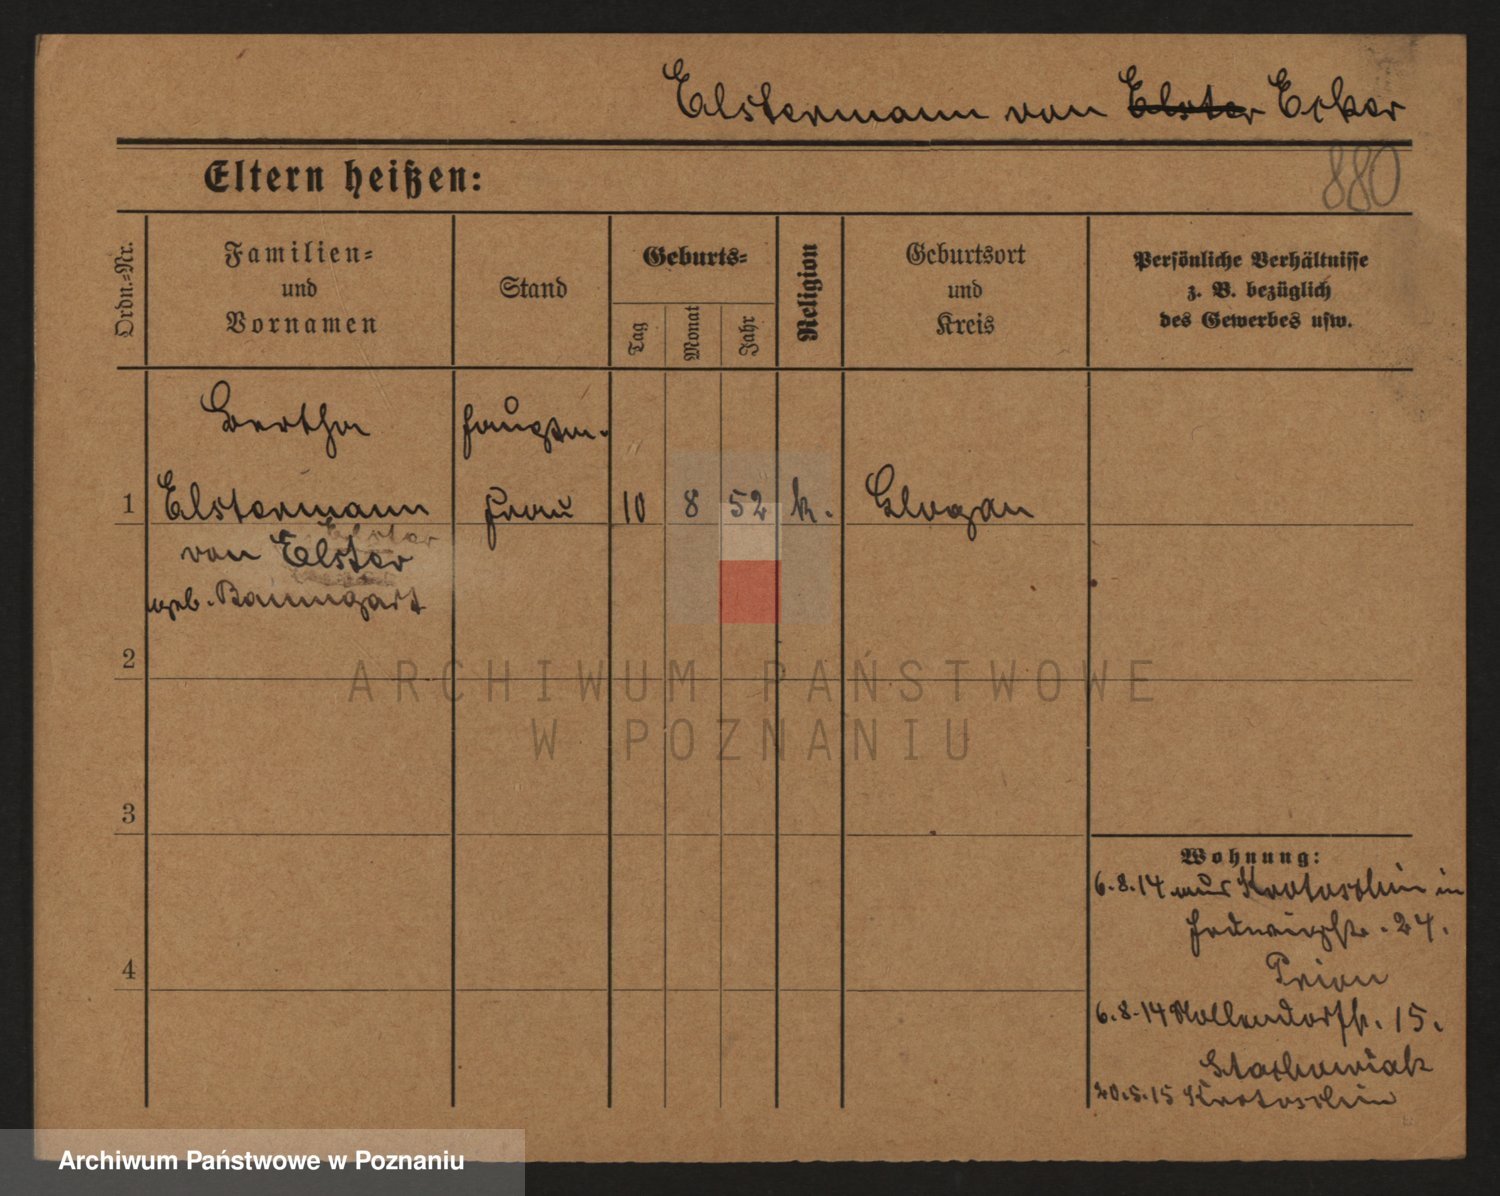 Elstermann von Elster Ecker
880
Eltern heißen:
Ordn.-Nr.
Familien-
und
Vornamen
Stand
Geburts-
Tag
Monat
Jahr
Religion
Geburtsort
und
Kreis
Persönliche Verhältnisse
z. B. bezüglich
des Gewerbes usw.
Bertha
1 Elstermann Frau 10 8 52 k. Glogau
Elster
von Elster
geb. Baumgart
2
3
4
Wohnung:
6.8.14 aus Krotoschin in
24.
Prion
6.8.14 Nollendorfstr. 15.
Stachowiak
20.5.15 Krotoschin
ARCHIWUM PAŃSTWOWE
W POZNANIU
Archiwum Państwowe w Poznaniu